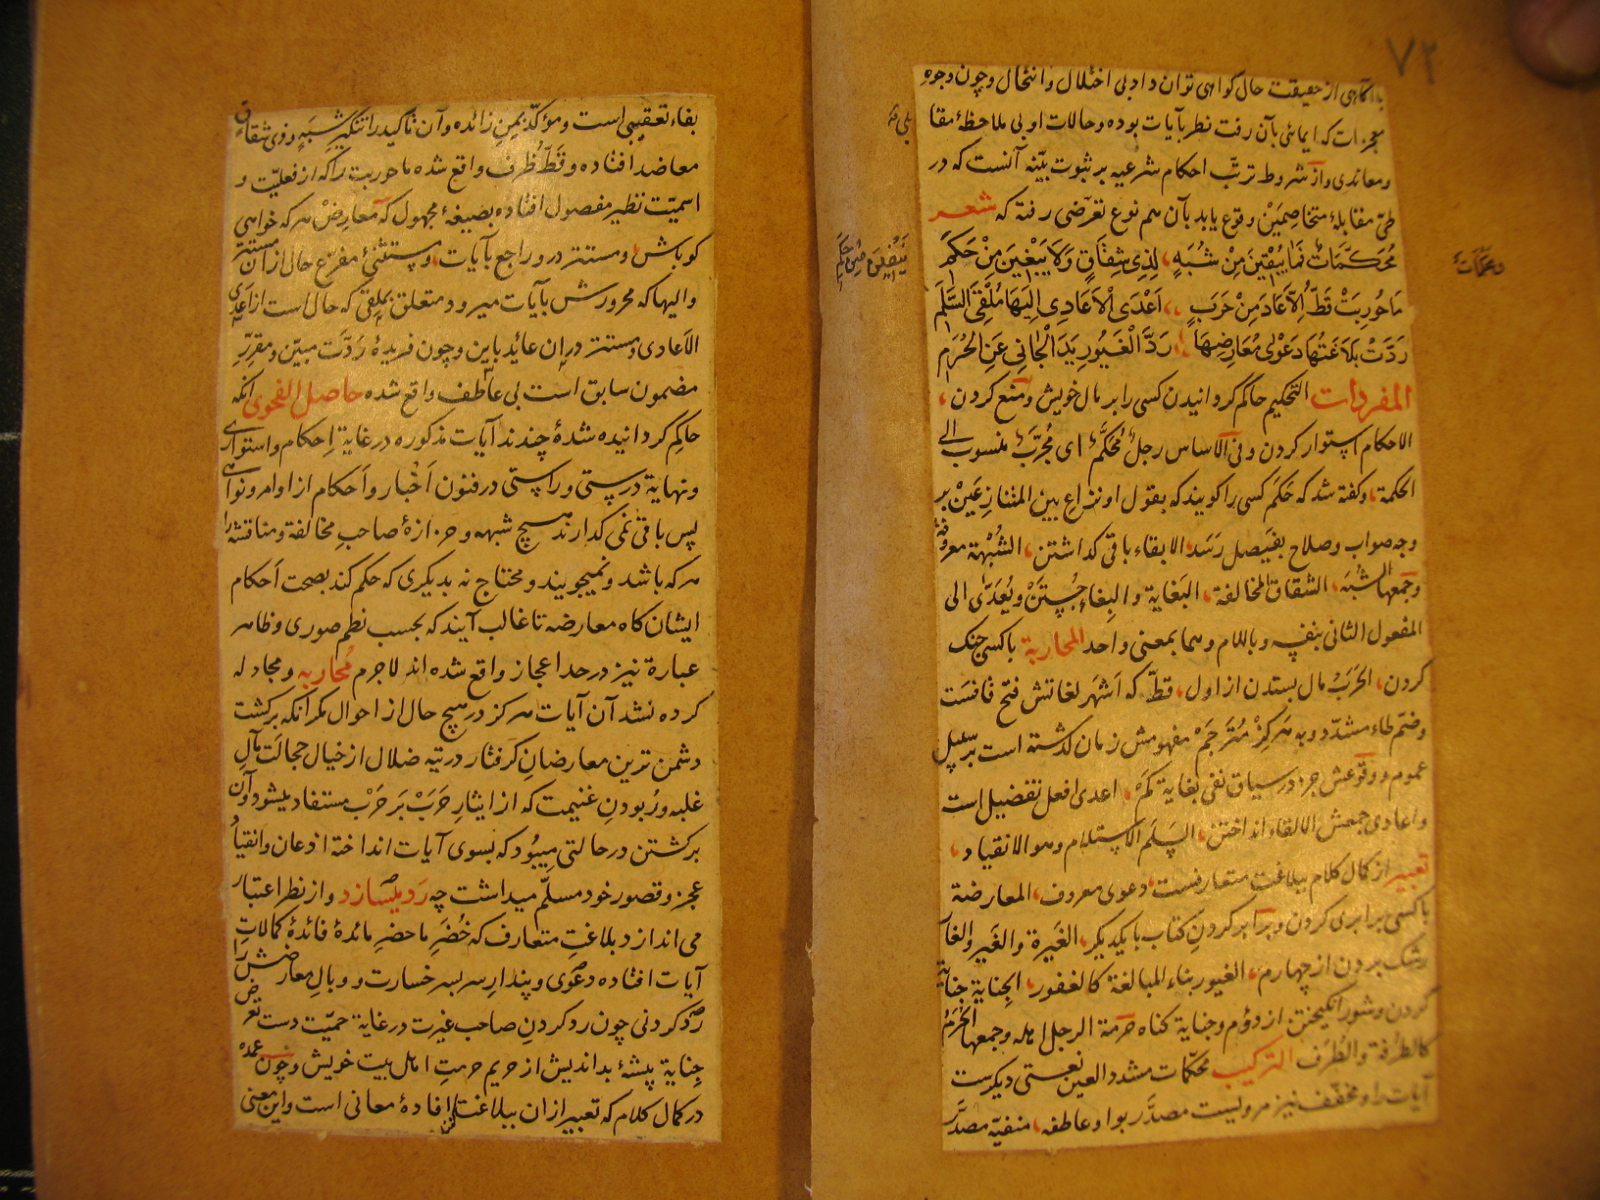 ۷۲
با آگاهی از حقیقت حال گواهی توان داد بی اختلال و انتحال و چون وجوه
معجزات که ایمائی بآن رفت نظر بآیات بوده و حالات او بی ملاحظهٔ مقا
و معاندی و از شروط ترتب احکام شرعیه بر ثبوت بینه آنست که در
طی مقابلهٔ متخاصمین وقوع یابد بآن هم نوع تعرضی رفته که شعر
مُحَکَّمَاتٌ فَمَا یُبْقِینَ مِنْ شُبَهٍ لِذِی شِقَاقٍ وَلَا یَبْغِینَ مِنْ حَکَمِ
مَا حُورِبَتْ قَطُّ اِلَّا عَادَ مِنْ حَرَبٍ اَعْدَی الْاَعَادِی اِلَیْهَا مُلْقِیَ السَّلَمِ
رَدَّتْ بَلَاغَتُهَا دَعْوٰی مُعَارِضِهَا رَدَّ الْغَیُورِ یَدَ الْجَانِی عَنِ الْحُرَمِ
المفردات التحکیم حاکم گردانیدن کسی را بر مال خویش و منع کردن
الاحکام استوار کردن و فی الاساس رجل مُحَکَّم ای مُجَرَّب منسوب الی
الحکمة وکفته شد که حَکَم کسی را کویند که بقول او نزاع بین المتنازعین بر
وجه صواب و صلاح بفیصل رسد الابقاء باقی کذاشتن الشُبْهة معروفة
وجمعها الشُبَه الشقاق المخالفة البَغایة والبِغاء جُستن و یُعَدّٰی الی
المفعول الثانی بنفسه وباللام وهما بمعنی واحد المحاربة باکسی جنک
کردن الحَرَبُ مال بستدن از اول قطّ که اَشهر لغاتش فتح قافست
وضمّ طاء مشدّد و به هَرکِزْ مُتَرجَم مفهومش زمان کذشته است بر سبیل
عموم و وقوعش جز در سیاق نفی بغایة کم اعدی افعل تفضیل است
و اعادی جمعش الالقاء انداختن السَلَم الاستلام وهو الانقیاد
تعبیر از کمال کلام ببلاغت متعارفست دعوی معروف المعارضة
باکسی برابری کردن و برابر کردن کتاب بایکدیکر الغَیرة والغَیر والغا
رشک بردن از چهارم الغیور بناء للمبالغة کالغفور الجِنایة جِنایة
کردن و شور انکیختن از دوم و جنایة کناه حرمة الرجل اهله وجمعها الحُرَمُ
کالطُرفة والطُرَف الترکیب محکّمات مشدد العین نعتی دیکرست
آیات را و مخفّف نیز مرویست مصدّر بواو عاطفه منفیّه مصدّر
بلی قه
یَبْغِینَ مِن حَکَمِ
و محکمات
بفاء تعقیبی است و مؤکّد بمنِ زائده و آن تاکید را تنکیر شُبَهٍ و ذی شقاقٍ
معاضد افتاده و قَطّ ظرف واقع شده ما حوربت را که از فعلیّت و
اسمیّت نظیر مفصول افتاده بصیغهٔ مجهول که معارِض هر که خواهی
کو باش و مستتر درو راجع بآیات و مستثنیٔ مفرّع حال از آن مستتر
و الیها که مجرورش بآیات میرود متعلق بملقی که حال است از اعدی
الاَعادی و مستتر در آن عائد باین و چون فریدهٔ رَدَّت مبیّن و مقرّرِ
مضمون سابق است بی عاطف واقع شده حاصل الفحوی انکه
حاکم کردانیده شدهٔ چندند آیات مذکوره در غایة اِحکام و استواری
و نهایة درستی و راستی در فنون اَخبار و اَحکام از اوامر و نواهی
پس باقی نمی کذارند هیچ شبهه و حزازهٔ صاحبِ مخالفة و مناقشه را
هر که باشد و نمیجویند و محتاج نه بدیکری که حکم کند بصحت اَحکام
ایشان کاه معارضه تا غالب آیند که بحسب نظم صوری و ظاهر
عبارة نیز در حد اعجاز واقع شده اند لاجرم مُحاربه و مجادله
کرده نشد آن آیات هرکز در هیچ حال از احوال مکر انکه برکشت
دشمن ترین معارضانِ کرفتار در تیه ضلال از خیال حجالت مآلِ
غلبه و ربودن غنیمت که از ایثارِ حَرَبْ بَر حَرْب مستفاد میشود و آن
برکشتن در حالتی میبود که بسوی آیات انداختهٔ اذعان و انقیاد
عجز و قصور خود مسلّم میداشت چه رَد میسازد و از نظر اعتبار
می اندازد بلاغتِ متعارف که خُضَرِ ما حضرِ مائدهٔ فائدهٔ کمالاتِ
آیات افتاده دعوی و پندارِ سر بسر خسارت و وبالِ معارضش را
رد کردنی چون رد کردنِ صاحب غیرت در غایة حمیّت دست تعرض
جِنایة پیشهٔ بداندیش از حریم حرمتِ اهل بیت خویش و چون عمده
در کمال کلام که تعبیر از ان ببلاغت افادهٔ معانی است و این معنی